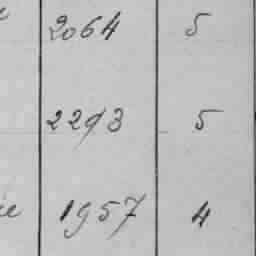 2064 5
2293 5
1957 4